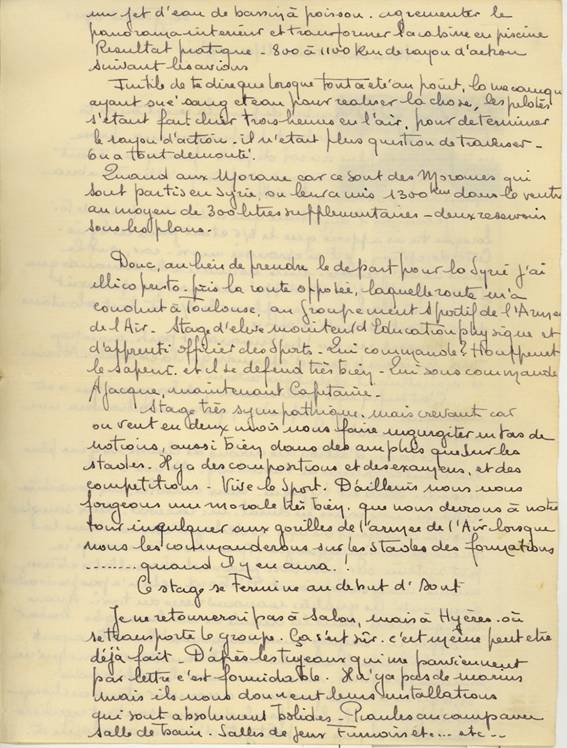 un jet d'eau de bassin à poisson. agrementer le
panorama interieur et transformer la cabine en piscine
Résultat pratique - 800 à 1100 km de rayon d'action
suivant les avions
Inutile de te dire que lorsque tout a été au point, la mecanique
ayant sué sang et eau pour realiser la chose, les pilotes
s'etant fait chier trois heures en l'air, pour determiner
le rayon d'action. il n'etait plus question de traverser -
On a tout demonté.
Quand aux Morane car ce sont des Moranes qui
sont partis en Syrie, on leur a mis 1300 km dans le ventre
au moyen de 300 litres supplementaires - deux reservoirs
sous les plans.
Donc, au lieu de prendre le depart pour la Syrie j'ai
illico presto - pris la route opposée, laquelle route m'a
conduit à Toulouse, au Groupement Sportif de l'Armée
de l'Air - Stage d'eleve moniteur d'Education physique et
d'apprenti officier des Sports - Qui commande?
le sapeur. et il se defend très bien - Qui sous commande
Ajacque, maintenant Capitaine -
Stage très sympathique, mais crevant car
on veut en deux mois nous faire ingurgiter un tas de
notions, aussi bien dans des amphis que sur les
stades. Il y a des compositions et des examens, et des
competitions - Vive le Sport. D'ailleurs nous nous
forgeons une morale très bien, que nous devrons à notre
tour inculquer aux gouilles de l'armee de l'Air lorsque
nous les commanderons sur les stades des formations
........ quand il y en aura.!
Ce stage se termine au debut d'Aout
Je ne retournerai pas à Salon, mais à Hyères. où
se transporte le groupe. Ça s'est sûr. c'est même peut etre
déjà fait - D'après les tuyaux qui me parviennent
par lettre c'est formidable. Il n'y a pas de marins
mais ils nous donnent leurs installations
qui sont absolument - Piaules au campare
salle de bain. Salles de jeux Fumoirs et... etc --